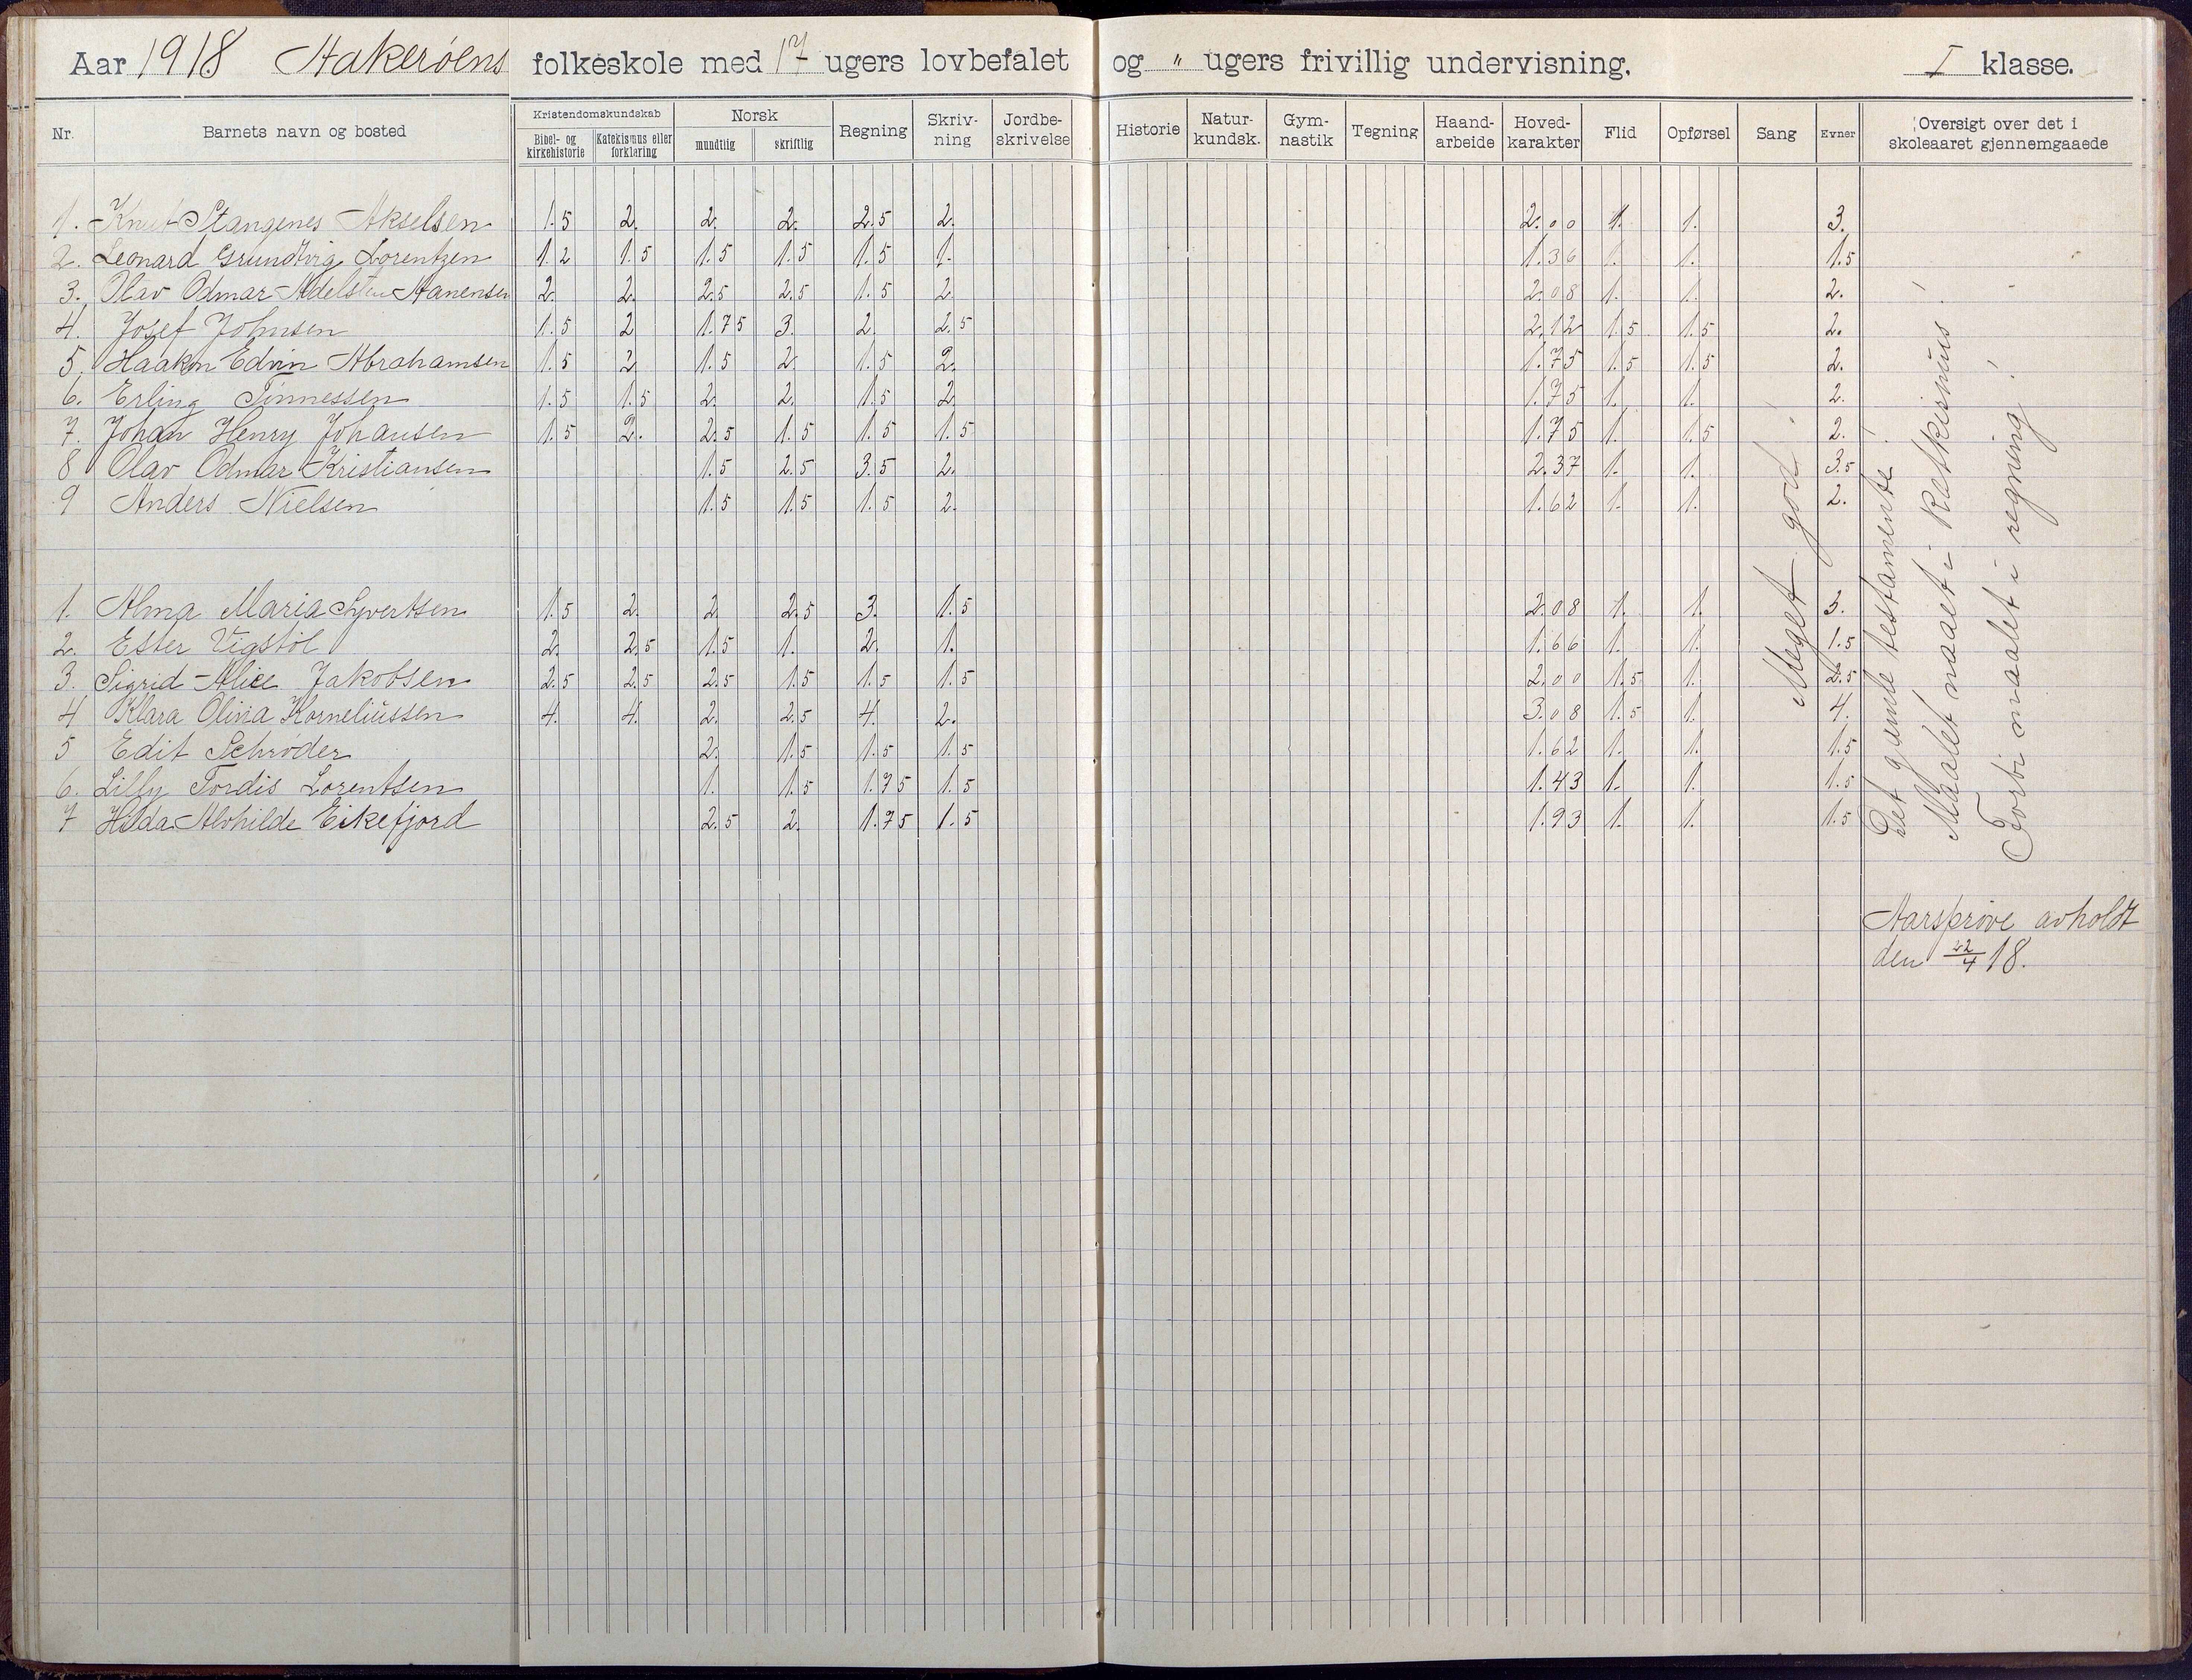 Aar 1918 Stakerøens folkeskole med 17 ugers lovbefalet og " ugers frivillig undervisning. I klasse.
Nr. Barnets navn og bosted Kristendomskundskab Bibel- og kirkehistorie Katekismus eller forklaring Norsk mundtlig skriftlig Regning Skriv-ning Jordbe-skrivelse Historie Natur-kundsk. Gym-nastik Tegning Haand-arbeide Hoved-karakter Flid Opførsel Sang Evner Oversigt over det i skoleaaret gjennemgaaede
1. Knut Stangenes Akselsen 1.5 2. 2. 2. 2.5 2. 2.00 1. 1. 3.
2. Leonard Grundtvig Lorentzen 1.2 1.5 1.5 1.5 1.5 1. 1.36 1. 1. 1.5
3. Olav Odmar Adelsten Hanensen 2. 2. 2.5 2.5 1.5 2 2.08 1. 1. 2.
4. Josef Johnsen 1.5 2 1.75 3. 2. 2.5 2.12 1.5 1.5 2.
5. Haakon Edvin Abrahamsen 1.5 2 1.5 2. 1.5 2. 1.75 1.5 1.5 2.
6. Erling Tønnessen 1.5 1.5 2. 2. 1.5 2 1.75 1. 1. 2.
7. Johan Henry Johansen 1.5 2. 2.5 1.5 1.5 1.5 1.75 1. 1.5 2.
8 Olav Odmar Kristiansen 1.5 2.5 3.5 2. 2.37 1. 1. 3.5
9 Anders Nielsen 1.5 1.5 1.5 2. 1.62 1. 1. 2.
1. Alma Maria Syvertsen 1.5 2. 2 2.5 3. 1.5 2.08 1. 1. 3.
2. Ester Vigstøl 2. 2.5 1.5 1. 2. 1. 1.66 1. 1. 1.5
3. Sigrid Alice Jakobsen 2.5 2.5 2.5 1.5 1.5 1.5 2.00 1.5 1. 2.5
4 Klara Olivia Korneliussen 4. 4. 2. 2.5 4. 2. 3.08 1.5 1. 4.
5 Edit Schrøder 2. 1.5 1.5 1.5 1.62 1. 1. 1.5
6. Lilly Tordis Lorentsen 1. 1.5 1.75 1.5 1.43 1. 1. 1.5
7 Hilda Alvhilde Eikefjord 2.5 2. 1.75 1.5 1.93 1. 1. 1.5
Meget god!
Det gamle testamente!
Maalet naaet i katkeismus!
Forbi maalet i regning!
Aarsprøve avholdt
den 22/4 18.